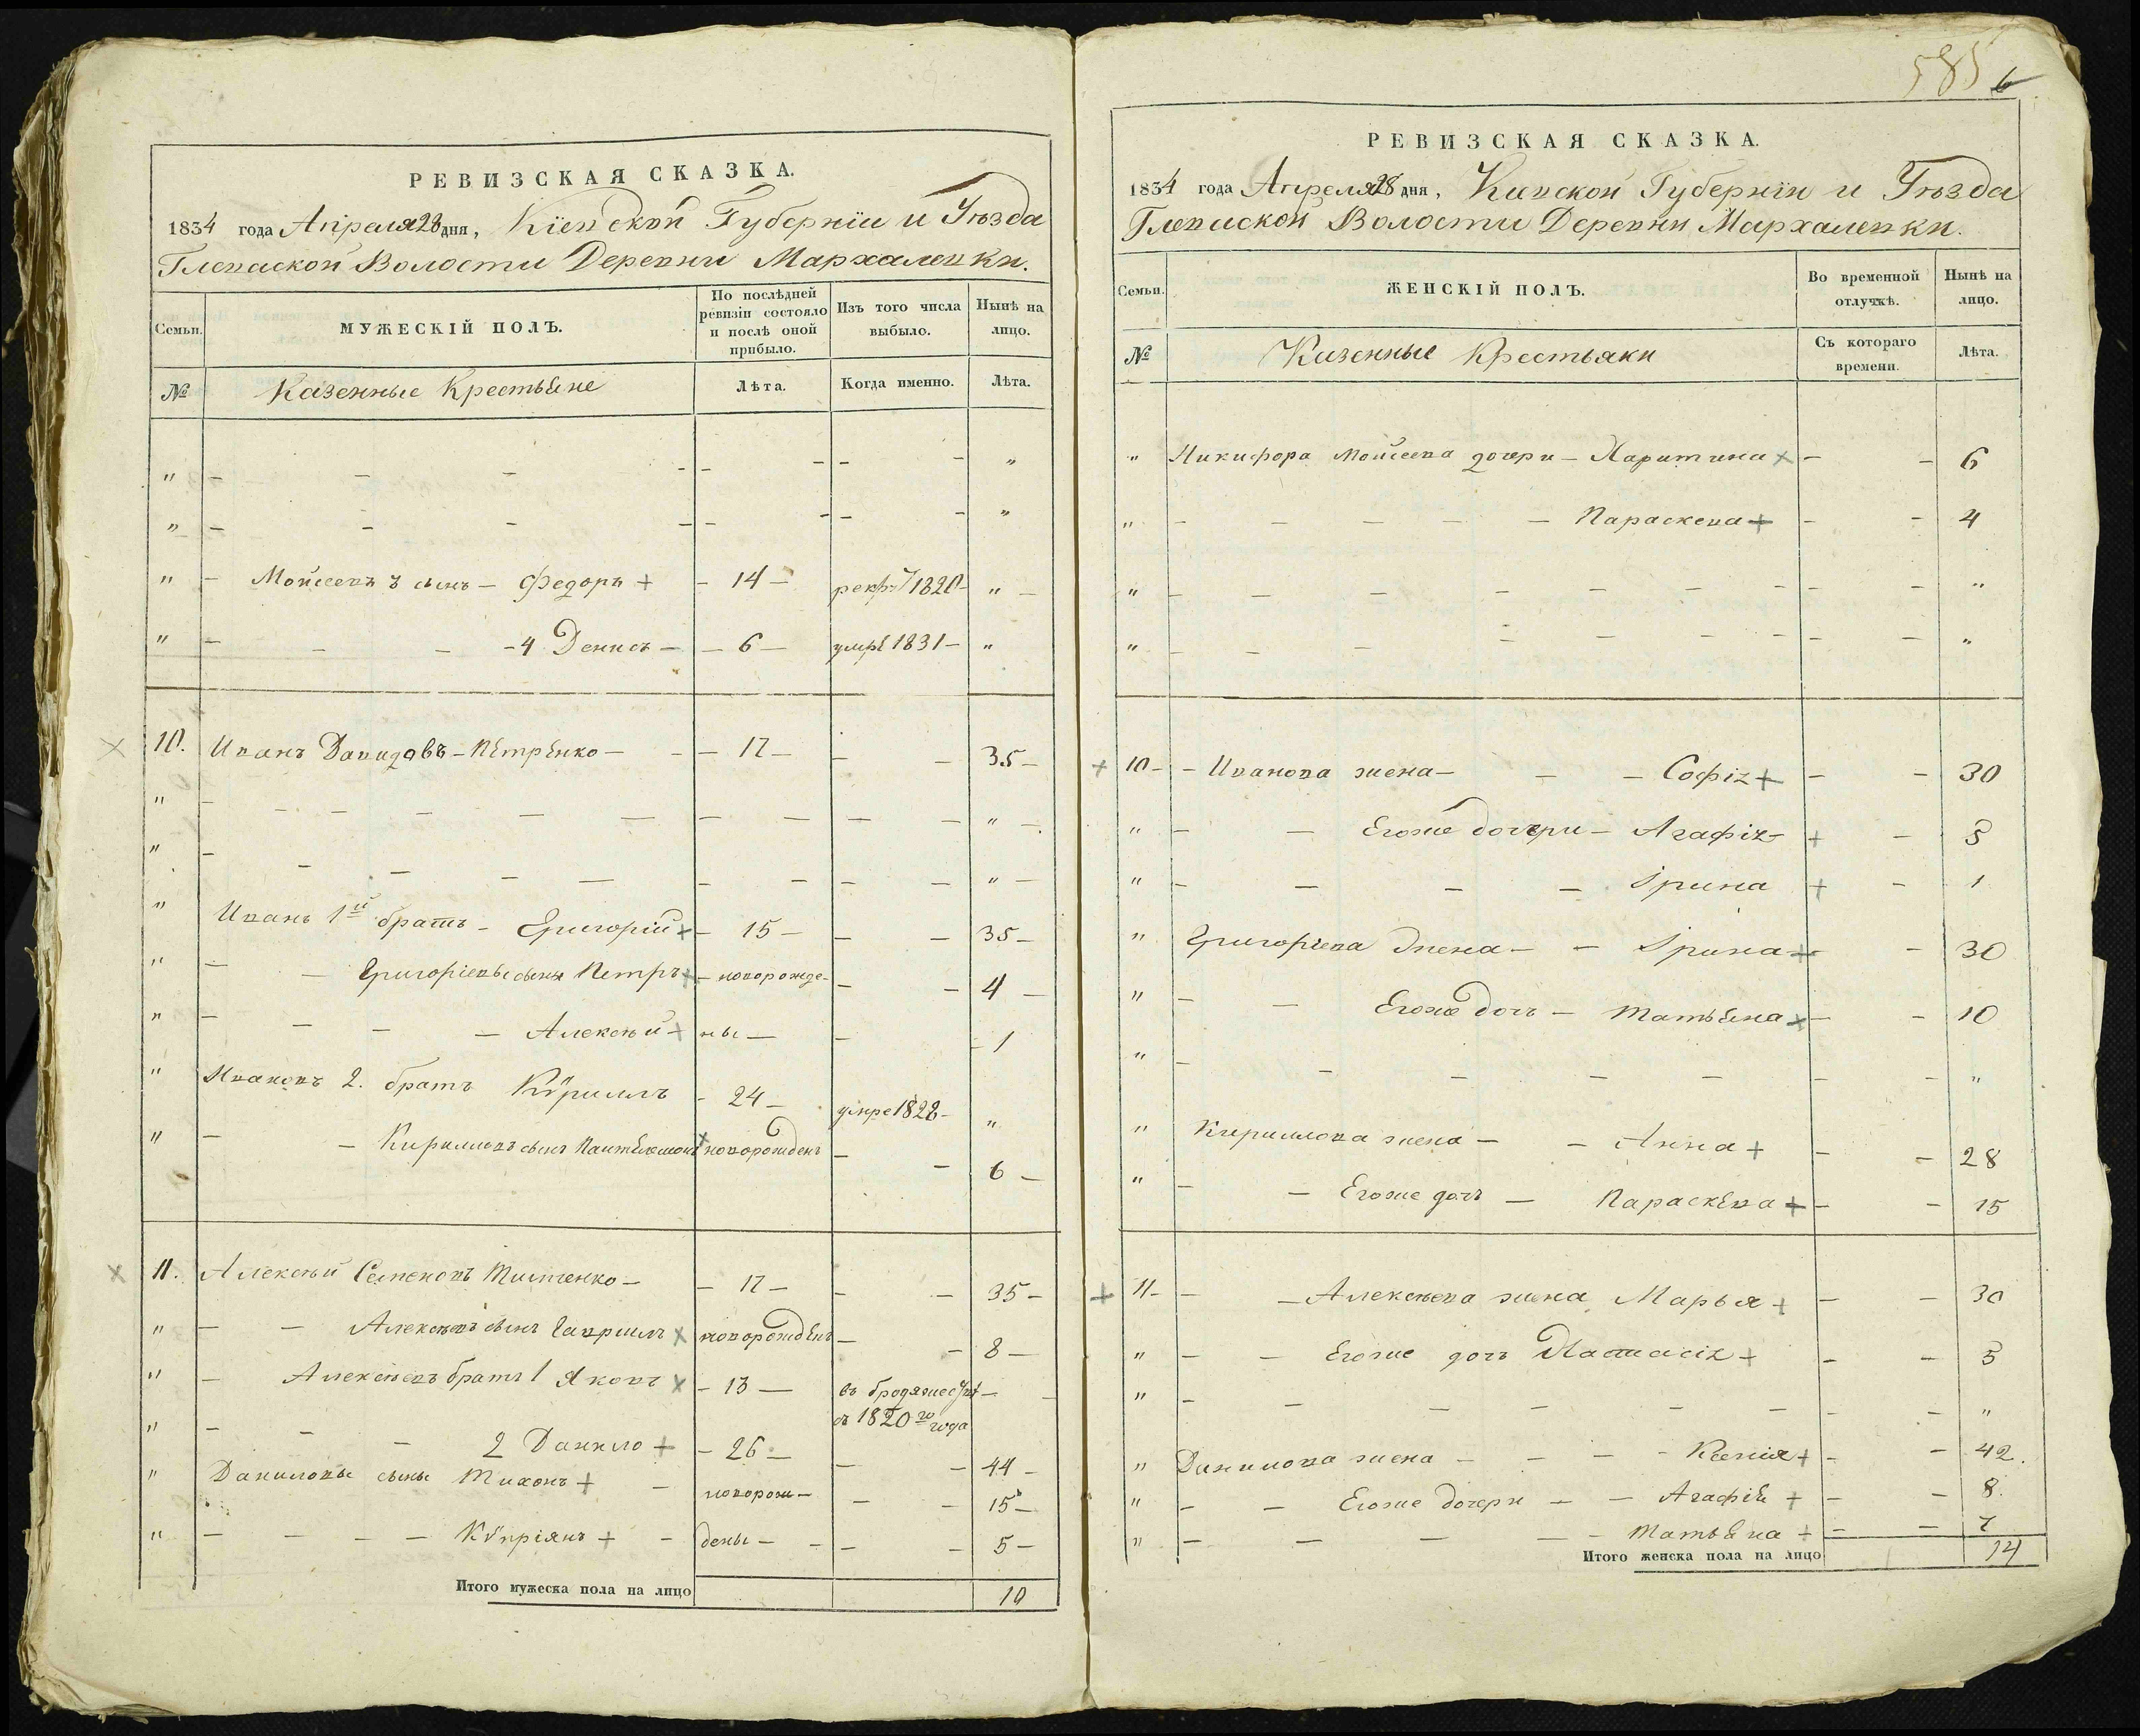 РЕВИЗСКАЯ СКАЗКА.
1834 года Апреля 28 дня, Кіевской Губерніи и Уѣзда
Глеваской Волости Деревни Мархалевки.
Семьи. МУЖЕСКІЙ ПОЛЪ. По послѣдней ревизіи состояло и послѣ оной прибыло. Изъ того числа выбыло. Нынѣ на лицо.
№ Казенные Крестьяне Лѣта. Когда именно. Лѣта.
" - - - - - - - - "
" - - - - - - - - "
" - Моисеевъ 3 сынъ - Федоръ + - 14 - рекр 1820 - " -
" - - - - 4 Денисъ - - 6 - умре 1831 - "
10. Иванъ Давидовъ - Петренко - - - 17 - - - 35 -
" - - - - - - - - - - " -
" - - - - - - - - - " -
" Иванъ 1й братъ - Григорій + - 15 - - - 35 -
" - - Григоріевы сыны Петръ + - новорожде- - - 4 -
" - - - - Алексѣй + ны - - - 1
" Ивановъ 2. братъ Кѵрилъ - 24 - умре 1828 - "
" - - Кириловъ сынъ Пантелемонъ новорожденъ - - 6 -
11. Алексѣй Семеновъ Тимченко - - 17 - - - 35 -
" - - Алексѣевъ сынъ Гаврилъ х новорожденъ - - 8 -
" - Алексѣевъ братъ 1 Яковъ х - 13 - въ бродяжест - -
съ 1820го года
" - - - 2 Данило + - 26 - - - 44 -
" Даниловы сыны Тихонъ + - новорож - - - 15 -
" - - - - Кѵпріянъ + - дены - - - - 5 -
Итого мужеска пола на лицо 10
585 6
РЕВИЗСКАЯ СКАЗКА.
1834 года Апреля 28 дня, Киевской Губерніи и Уѣзда
Глеваской Волости Деревни Мархалевки.
Семьи. ЖЕНСКІЙ ПОЛЪ. Во временной отлучкѣ. Нынѣ на лицо.
№ Казенные Крестьянки Съ котораго времени. Лѣта.
" Никифора Моисеева дочери - Харитина х - - 6
" - - - - - Параскева + - - 4
" - - - - - - - - - "
" - - - - - - - - "
+ 10 - - Иванова жена - - - Софія + - - 30
" - - Егоже дочери - Агафія - + - 5
" - - - - Ірина + - 1
" Григоріева жена - - Ірина + - 30
" - - Егоже дочь - Татьяна х - - 10
" - - - - - - - "
" Кирилова жена - - Анна + - - 28
" - - Егоже дочь - Параскева + - - 15
+ 11 - - - Алексѣева жена Марья + - - 30
" - - Егоже дочь Настасія + - - 5
" - - - - - - - - "
" Данилова жена - - - - Ксенія + - - 42.
" - - Егоже дочери - - Агафія + - - 8
" - - - - - Татьяна + - - 7
Итого женска пола на лицо 14